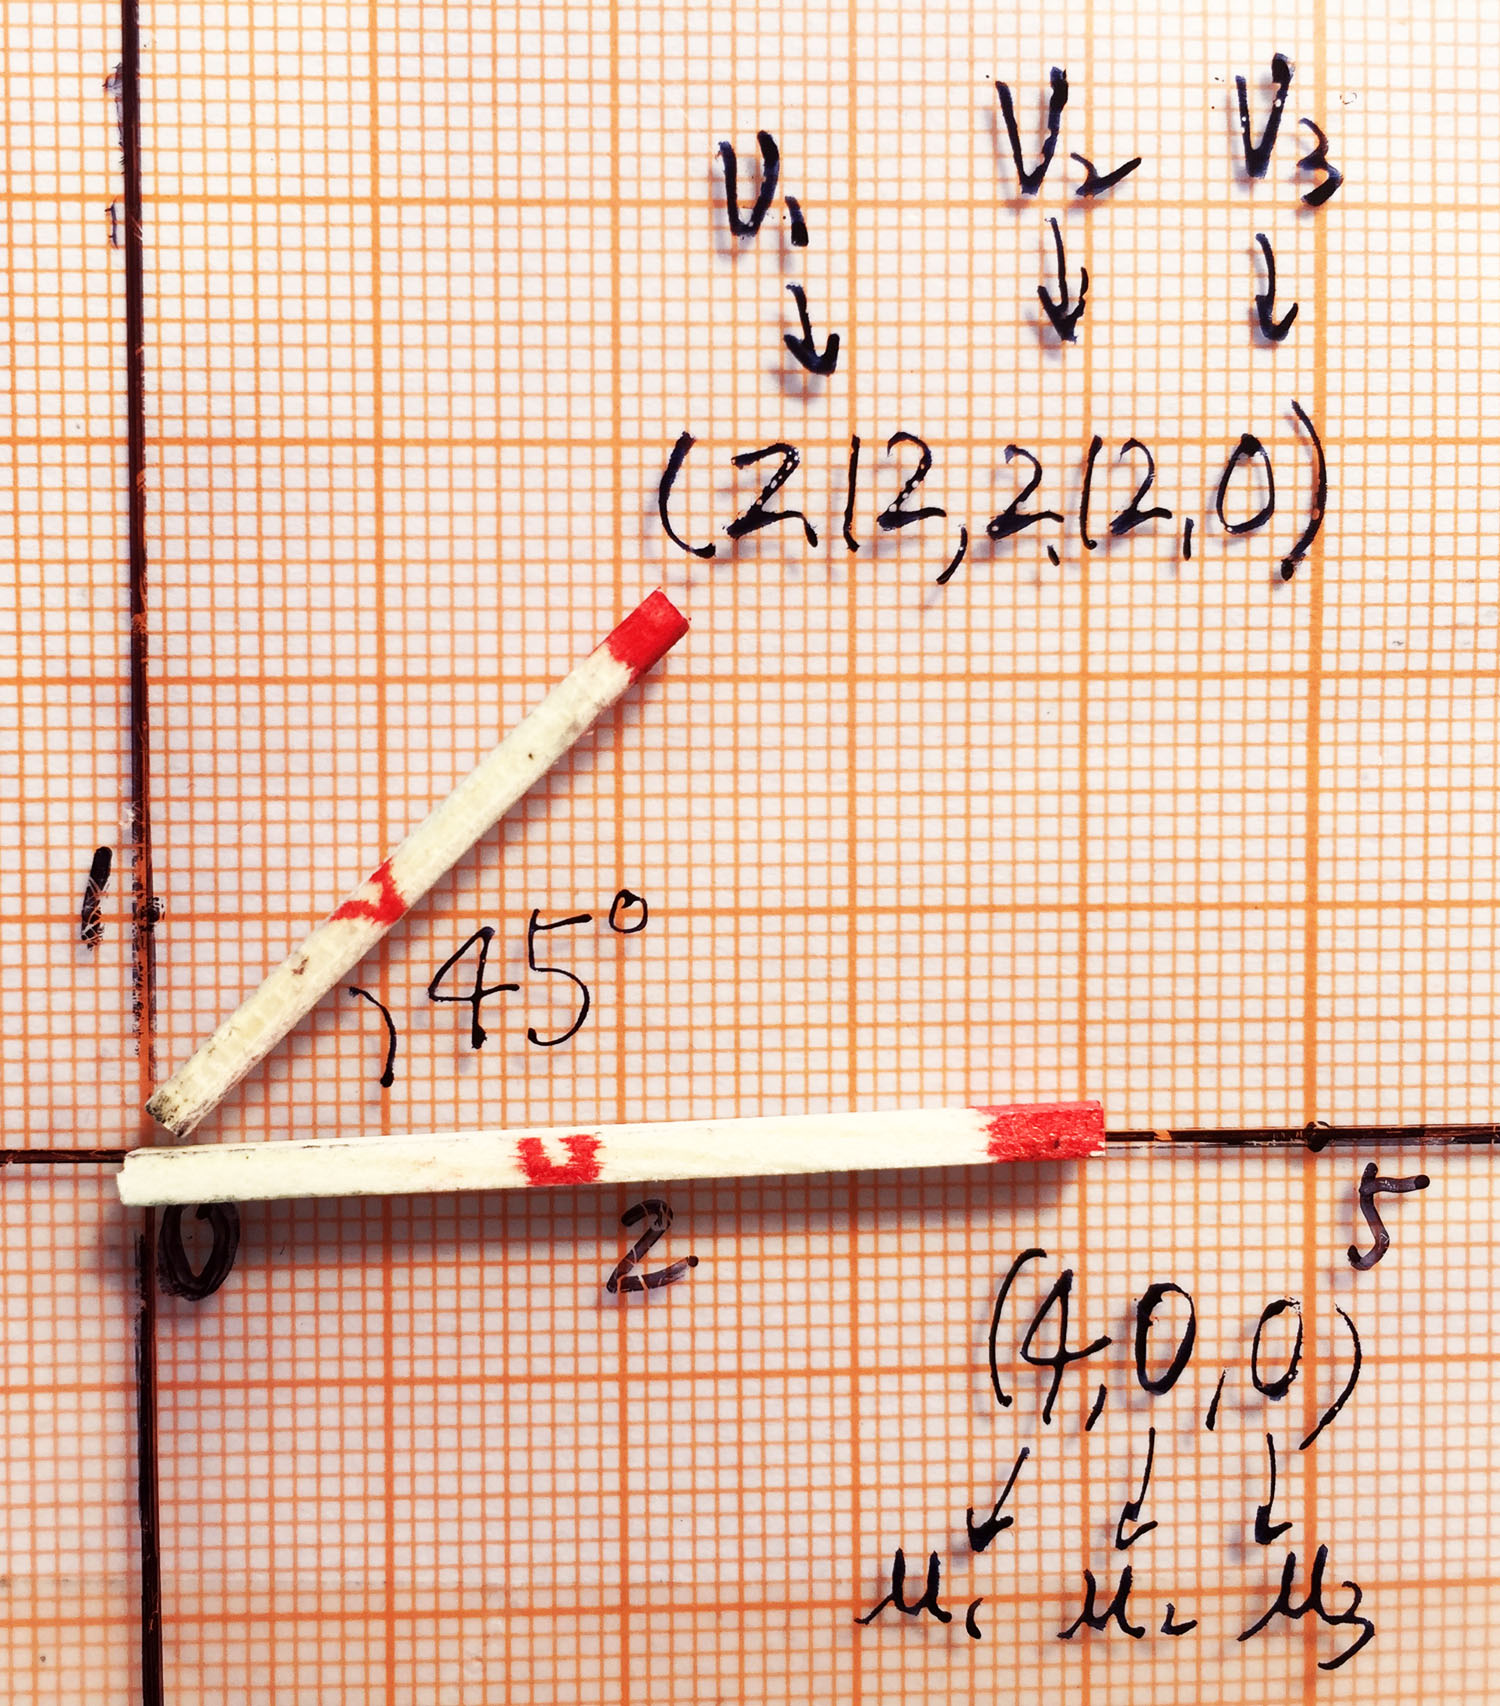 V₁ V₂ V₃
↓ ↓ ↓
(2.12, 2.12, 0)
1
V
45°
U
0 2 5
(4, 0, 0)
↓ ↓ ↓
u₁ u₂ u₃